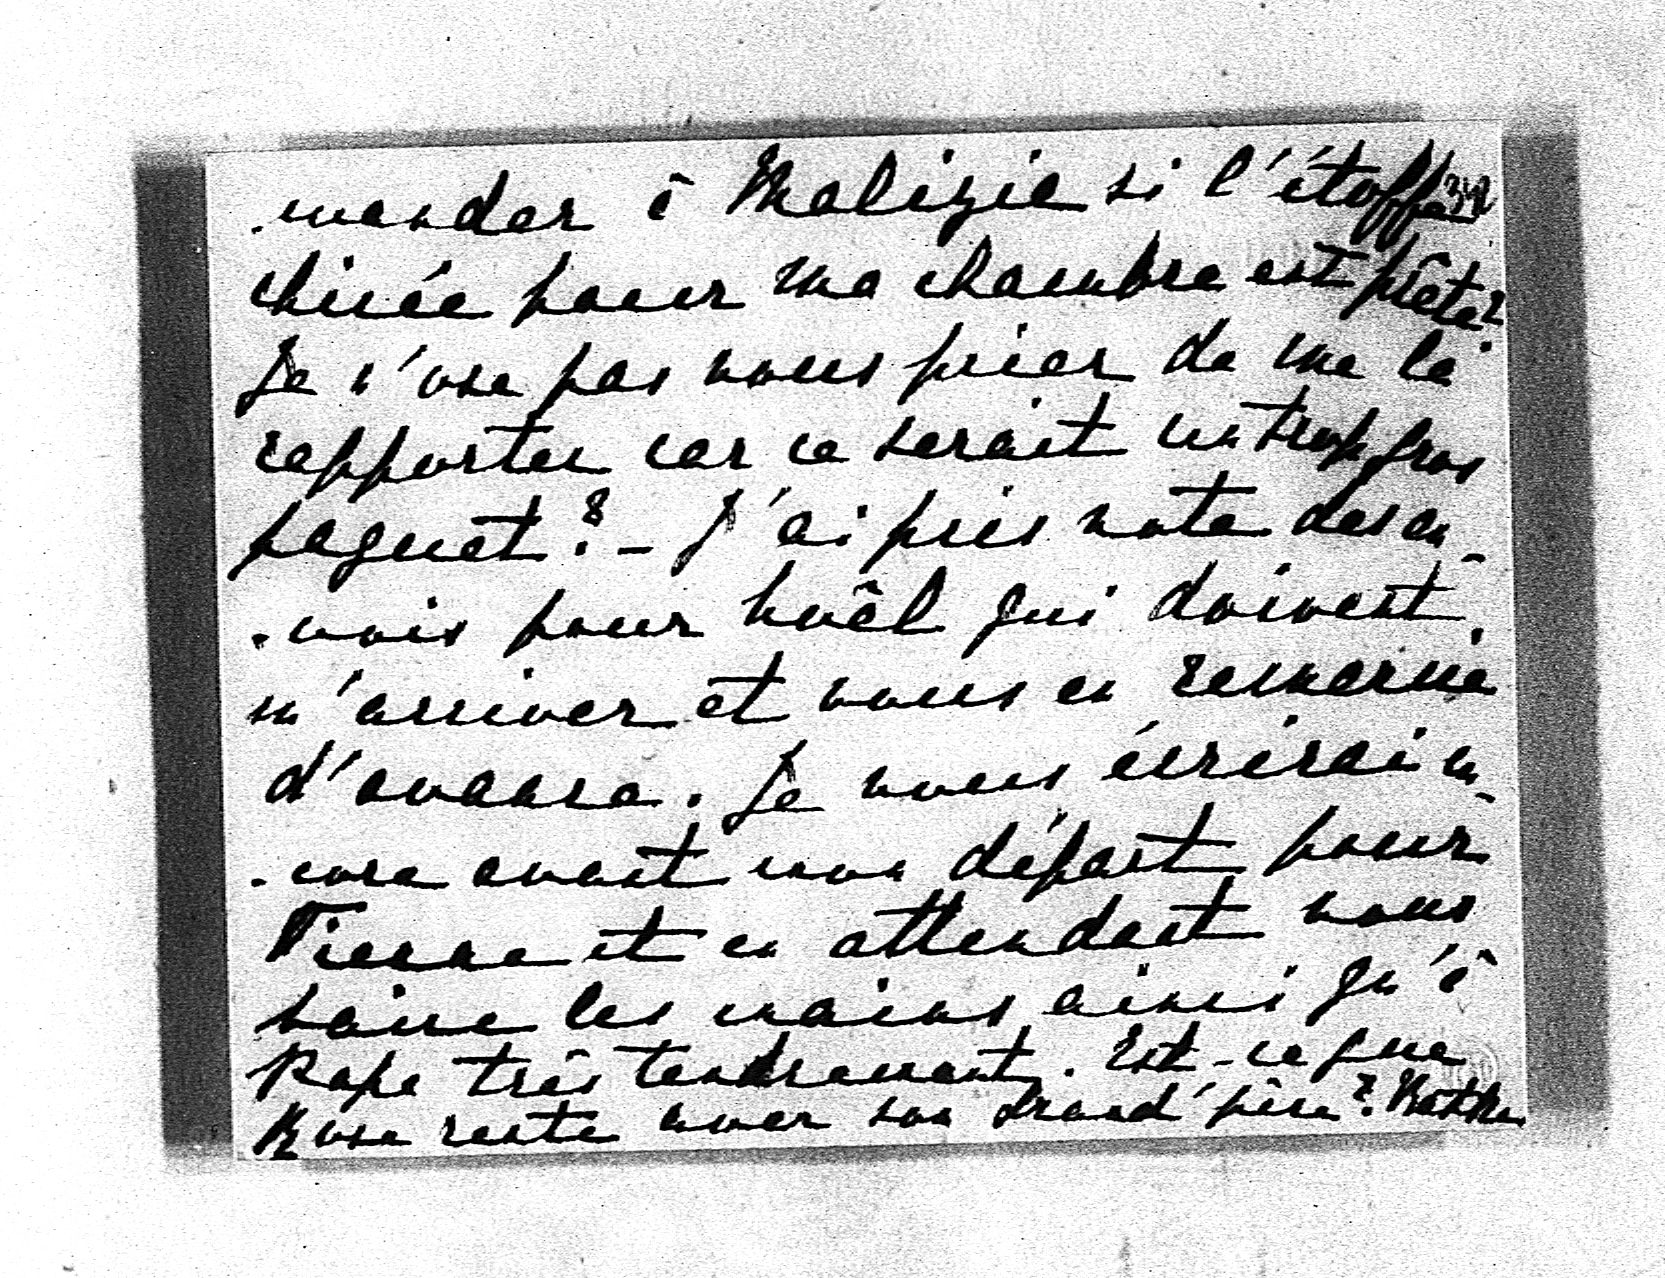 .mander à Malizia si l'étoffe
chinée pour ma chambre est prête?
Je n'ose pas vous prier de me la
rapporter car ce serait un trop gros
paquet? - J'ai pris note des en-
.vois pour Noêl qui doivent
m'arriver et vous en remercie
d'avance. Je vous écrirai en-
.core avant mon départ pour
Vienne et en attendant vous
baise les mains ainsi qu'à
Papa très tendrement. Est-ce que
Rose reste avec son Grand'père?